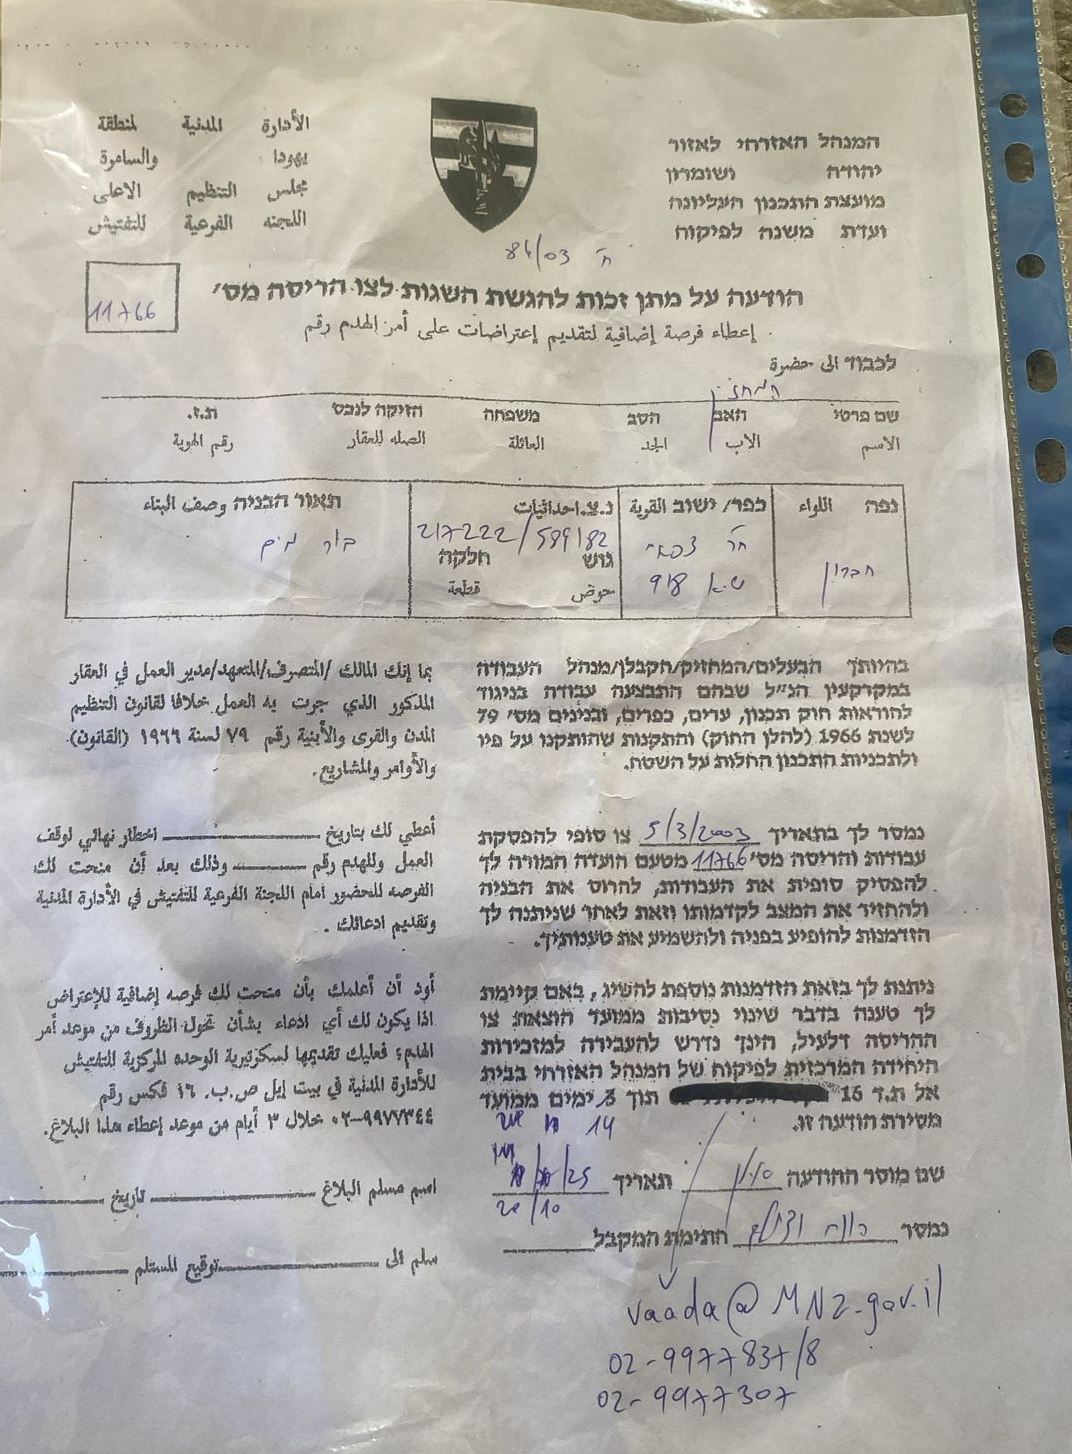 המנהל האזרחי לאזור
יהודה ושומרון
מועצת התכנון העליונה
ועדת משנה לפיקוח
الأدارة المدنية لمنطقة
يهودا والسامرة
مجلس التنظيم الاعلى
اللجنه الفرعية للتفتيش
ח' 84/03
הודעה על מתן זכות להגשת השגות לצו הריסה מס'
11766
إعطاء فرصة إضافية لتقديم إعتراضات على أمر الهدم رقم
לכבוד الى حضرة
המחזיק
שם פרטי האב הסב משפחה הזיקה לנכס ת.ז.
الاسم الاب الجد العائلة الصله للعقار رقم الهوية
נפה اللواء
חברון
כפר/ ישוב القرية
ח'
918
נ.צ. احداثيات
217222/589182
גוש חלקה
حوض قطعة
תאור הבניה وصف البناء
בור מים
בהיותך הבעלים/המחזיק/הקבלן/מנהל העבודה
במקרקעין הנ"ל שבהם התבצעה עבודה בניגוד
להוראות חוק תכנון, ערים, כפרים, ובנינים מס' 79
לשנת 1966 (להלן החוק) והתקנות שהותקנו על פיו
ולתכניות התכנון החלות על השטח.
بما إنك المالك /المتصرف/المتعهد/مدير العمل في العقار
المذكور الذي جرت به العمل خلافا لقانون التنظيم
المدن والقرى والأبنية رقم ٧٩ لسنة ١٩٦٦ (القانون)
والأوامر والمشاريع.
נמסר לך בתאריך 5/3/2003 צו סופי להפסקת
עבודות והריסה מס' 11766 מטעם הועדה המורה לך
להפסיק סופית את העבודות, להרוס את הבניה
ולהחזיר את המצב לקדמותו וזאת לאחר שניתנה לך
הזדמנות להופיע בפניה ולהשמיע את טענותיך.
أعطي لك بتاريخ اخطار نهائي لوقف
العمل وللهدم رقم وذلك بعد أن منحت لك
الفرصه للحضور أمام اللجنة الفرعية للتفتيش في الأدارة المدنية
وتقديم ادعائك .
ניתנת לך בזאת הזדמנות נוספת להשיג, באם קיימת
לך טענה בדבר שינוי נסיבות ממועד הוצאת צו
ההריסה דלעיל, הינך נדרש להעבירה למזכירות
היחידה המרכזית לפיקוח של המנהל האזרחי בבית
אל ת.ד 16 תוך 3 ימים ממועד
14
מסירת הודעה זו.
أود أن أعلمك بأن منحت لك فرصه إضافية للإعتراض
اذا يكون لك أي ادعاء بشأن تحول الظروف من موعد أمر
الهدم؛ فعليك تقديمها لسكرتيرية الوحده المركزية للتفتيش
للأدارة المدنية في بيت إيل ص.ب. ١٦ فكس رقم
٠٢-٩٩٧٧٣٤٤ خلال ٣ أيام من موعد إعطاء هذا البلاغ.
שם מוסר ההודעה תאריך
20/10
נמסר חתימת המקבל
اسم مسلم البلاغ تاريخ
سلم الى توقيع المستلم
vaada@MNZ.gov.il
02-9977837/8
02-9977307